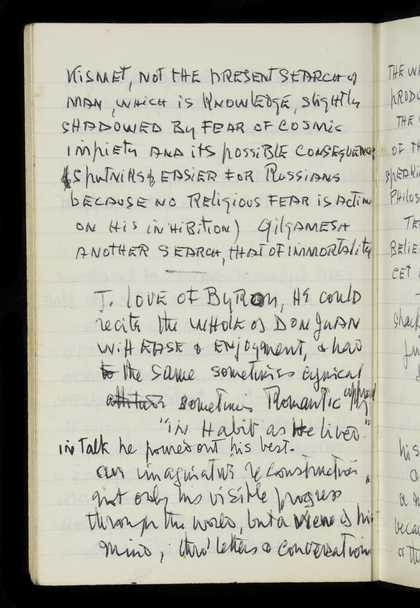 KISMET, NOT THE PRESENT SEARCH of
MAN, WHICH is KNOWLEDGE, slightly
SHADOWED By FEAR OF COSMIC
IMPIETY AND iTS POSSIBLE CONSEQUENCE
(SPUTNIKS EASIER FOR RUSSIANS
BECAUSE NO RELIGIOUS FEAR IS ACTING
ON HIS INHIBITION) GILGAMESH
ANOTHER SEARCH, THAT OF IMMORTALITY
J. LOVE OF BYRON, HE COULD
recite the WHOLE of DON JUAN
WITH EASE & ENJOYMENT, & had
the same sometimes cynical
sometimes Romantic
"IN Habit as He lived"
in talk he poured out his best.
an imaginative reconstruction
not only his visible progress
through the world, but a view of his
mind, thro' letters & conversation
THE
THE
OF
PHILOS
BELIE
his
a
becau